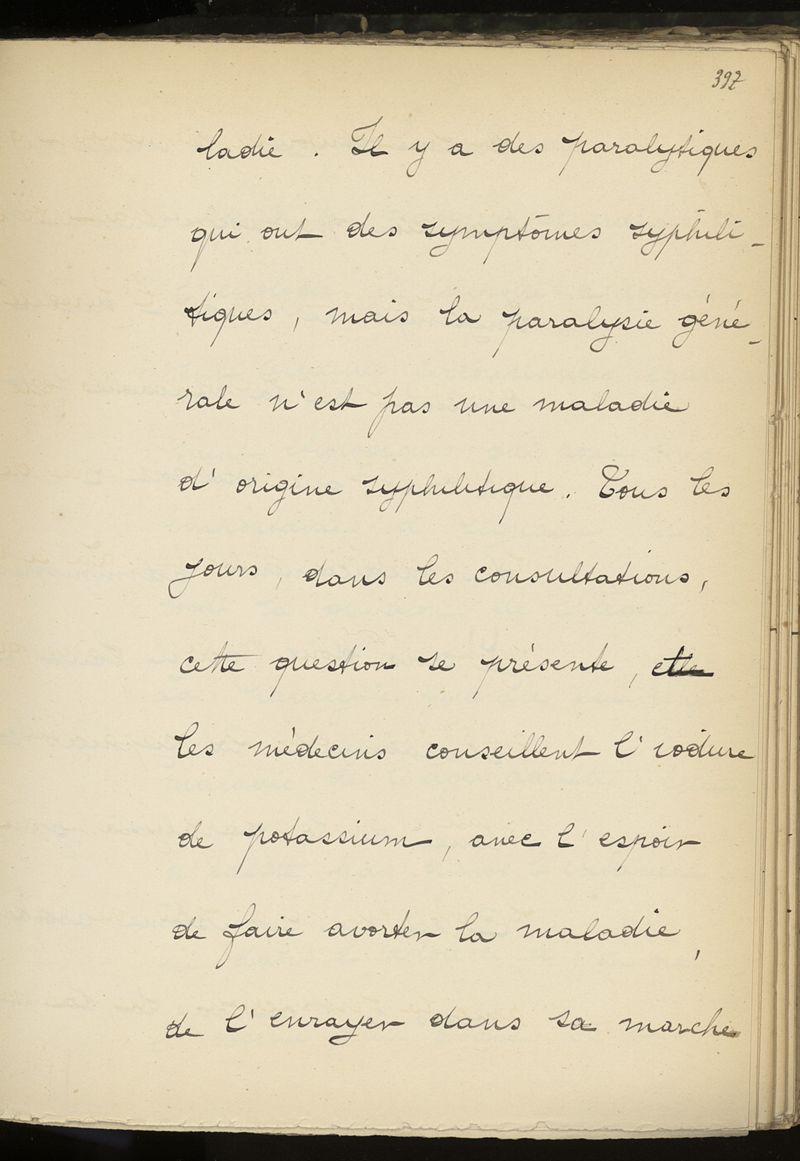 397
ladie. Il y a des paralytiques
qui ont des symptômes syphili-
tiques, mais la paralysie géné-
rale n'est pas une maladie
d'origine syphilitique. Tous les
jours, dans les consultations,
cette question se présente,
les médecins conseillent l'iodure
de potassium, avec l'espoir
de faire avorter la maladie,
de l'enrayer dans sa marche